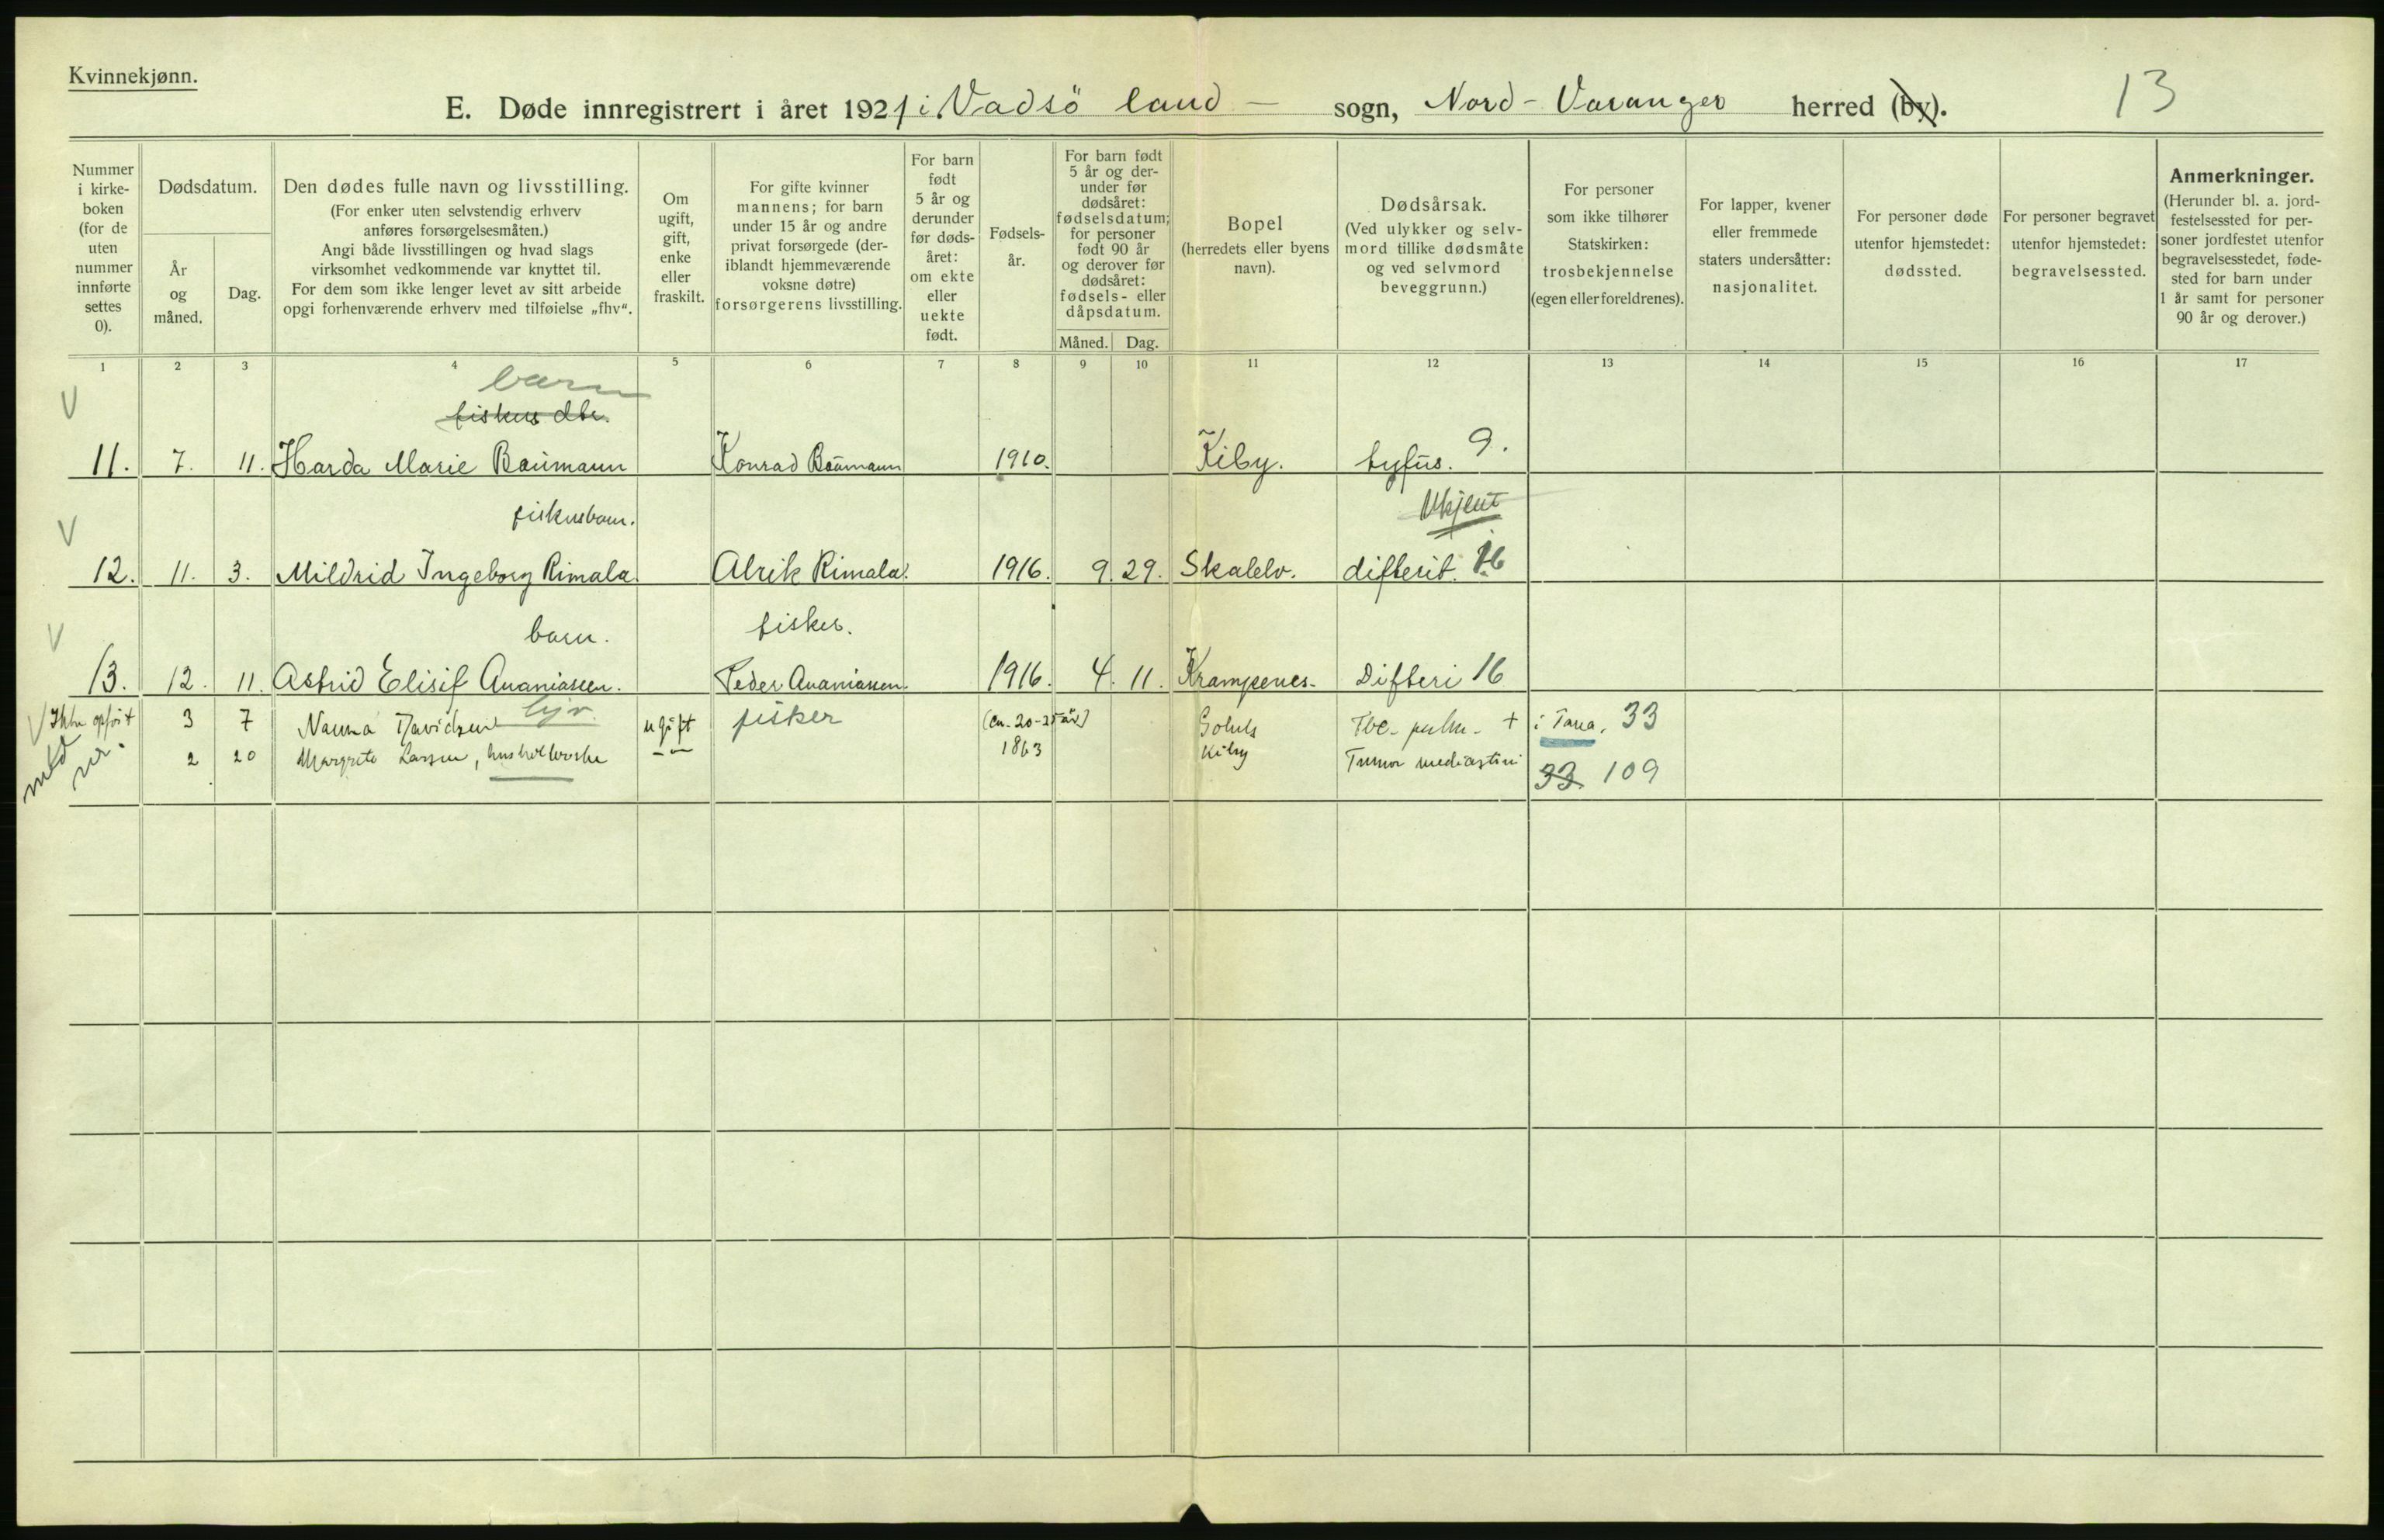 Kvinnekjønn.
E. Døde innregistrert i året 1921 i Vadsö land — sogn, Nord - Varanger herred (by).
13
Nummer i kirke- boken (for de uten nummer innførte settes 0).
Dødsdatum.
År og måned.
Dag.
Den dødes fulle navn og livsstilling.
(For enker uten selvstendig erhverv anføres forsørgelsesmåten.)
Angi både livsstillingen og hvad slags virksomhet vedkommende var knyttet til.
For dem som ikke lenger levet av sitt arbeide opgi forhenværende erhverv med tilføielse „fhv“.
Om ugift, gift, enke eller fraskilt.
For gifte kvinner mannens; for barn under 15 år og andre privat forsørgede (der- iblandt hjemmeværende voksne døtre) forsørgerens livsstilling.
For barn født 5 år og derunder før døds- året: om ekte eller uekte født.
Fødsels- år.
For barn født 5 år og der- under før dødsåret: fødselsdatum; for personer født 90 år og derover før dødsåret: fødsels- eller dåpsdatum.
Måned. Dag.
Bopel
(herredets eller byens navn).
Dødsårsak.
(Ved ulykker og selv- mord tillike dødsmåte og ved selvmord beveggrunn.)
For personer som ikke tilhører Statskirken: trosbekjennelse (egen eller foreldrenes).
For lapper, kvener eller fremmede staters undersåtter: nasjonalitet.
For personer døde utenfor hjemstedet: dødssted.
For personer begravet utenfor hjemstedet: begravelsessted.
Anmerkninger.
(Herunder bl. a. jord- festelsessted for per- soner jordfestet utenfor begravelsesstedet, føde- sted for barn under 1 år samt for personer 90 år og derover.)
1 2 3 4 5 6 7 8 9 10 11 12 13 14 15 16 17
barn
fiskers dtr.
11. 7. 11. Harda Marie Baumann Konrad Baumann 1910. Kiby. tyfus. 9.
fiskersbarn. Ukjent
12. 11. 3. Mildrid Ingeborg Rimala. Alrik Rimala. 1916. 9. 29. Skalelv. difterit. 16
barn. fisker.
13. 12. 11. Astrid Elisif Ananiassen. Peder Ananiassen. 1916. 4. 11. Krampenes. Difteri 16
Ikke opført 3 7 Nanna Davidsen ugift fisker (ca. 20-25 år) Tbc. pulm. + i Tana. 33
2 20 Margrete Larsen, 1863 Kiby Tumor mediastini 33 109